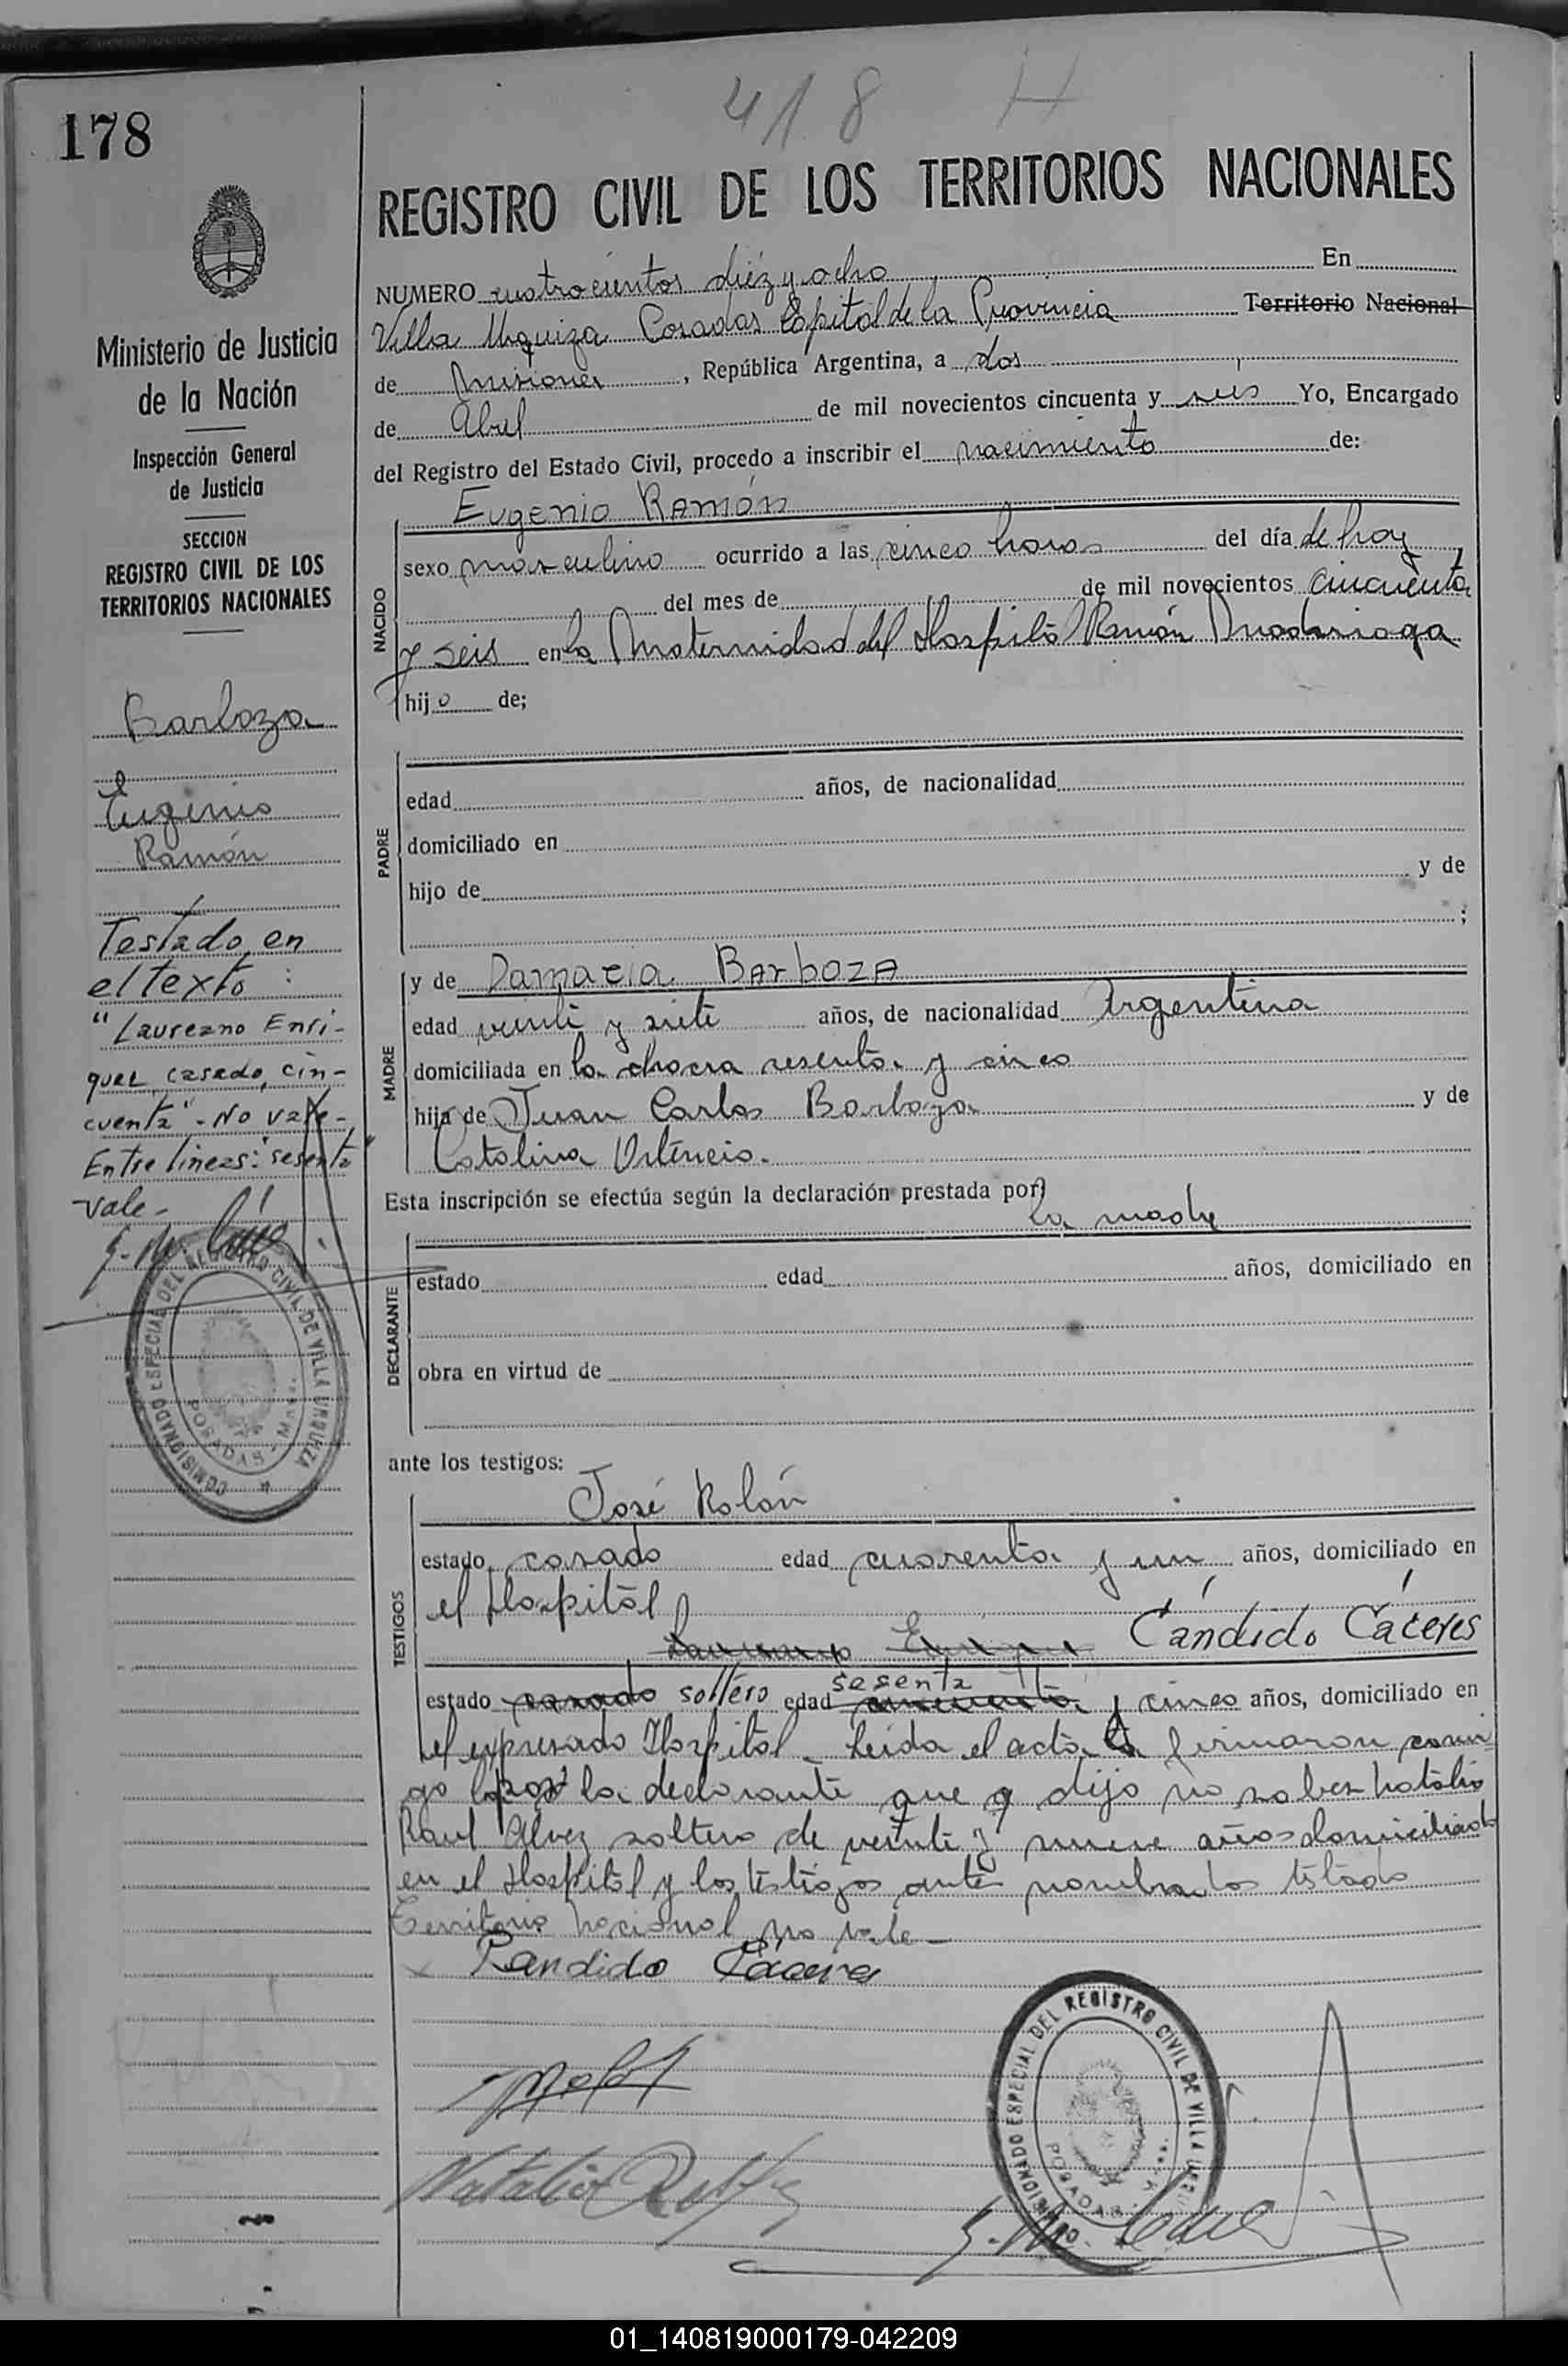 418 H
178
REGISTRO CIVIL DE LOS TERRITORIOS NACIONALES
NUMERO cuatrocientos diéz y ocho En
Villa Urquiza Posadas Capital de la Provincia Territorio Nacional
de Misiones, República Argentina, a dos
de Abril de mil novecientos cincuenta y seis Yo, Encargado
del Registro del Estado Civil, procedo a inscribir el nacimiento de:
Ministerio de Justicia
de la Nación
Inspección General
de Justicia
SECCION
REGISTRO CIVIL DE LOS
TERRITORIOS NACIONALES
Barboza
Eugenio
Ramón
Testado en
el texto :
"Laureano Enri-
quez casado, cin-
cuenta" - No vale -
Entre líneas: "sesenta"
vale -
COMISIONADO ESPECIAL DEL REGISTRO CIVIL DE VILLA URQUIZA
POSADAS - Mnes.
NACIDO
Eugenio Ramón
sexo masculino ocurrido a las cinco horas del día de hoy
del mes de de mil novecientos cincuenta
y seis en la Maternidad del Hospital Ramón Madariaga
hijo de;
PADRE
edad años, de nacionalidad
domiciliado en
hijo de y de
;
MADRE
y de Damacia Barboza
edad veinte y siete años, de nacionalidad Argentina
domiciliada en la chacra sesenta y cinco
hija de Juan Carlos Barboza y de
Catalina Ortencio.
Esta inscripción se efectúa según la declaración prestada por
la madre
DECLARANTE
estado edad años, domiciliado en
obra en virtud de
ante los testigos:
TESTIGOS
José Rolón
estado casado edad cuarenta y un años, domiciliado en
el Hospital
Laureano Enriquez Cándido Cáceres
estado casado soltero edad cincuenta sesenta y cinco años, domiciliado en
el expresado Hospital - Leida el acta la firmaron conmi
go por la declarante que dijo no saber Natalio
Raul Alvez soltero de veinte y nueve años domiciliado
en el Hospital y los testigos ante nombrados testado
Territorio Nacional no vale -
Candido Cáceres
COMISIONADO ESPECIAL DEL REGISTRO CIVIL DE VILLA URQUIZA
POSADAS - Mnes.
01_140819000179-042209